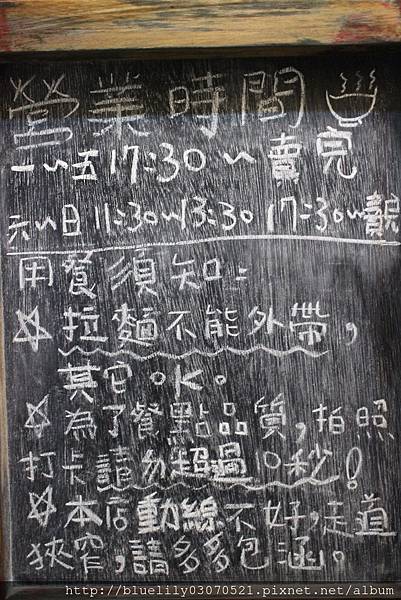 營業時間
一~五 17:30~賣完
六~日 11:30~13:30 17:30~賣完
用餐須知:
☆拉麵不能外帶,
其它OK。
☆為了餐點品質,拍照
打卡請勿超過10秒!
☆本店動線不好,走道
狹窄,請多多包涵。
http://bluelily03070521.pixnet.net/album